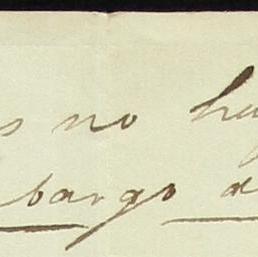 s no ha
bargo d